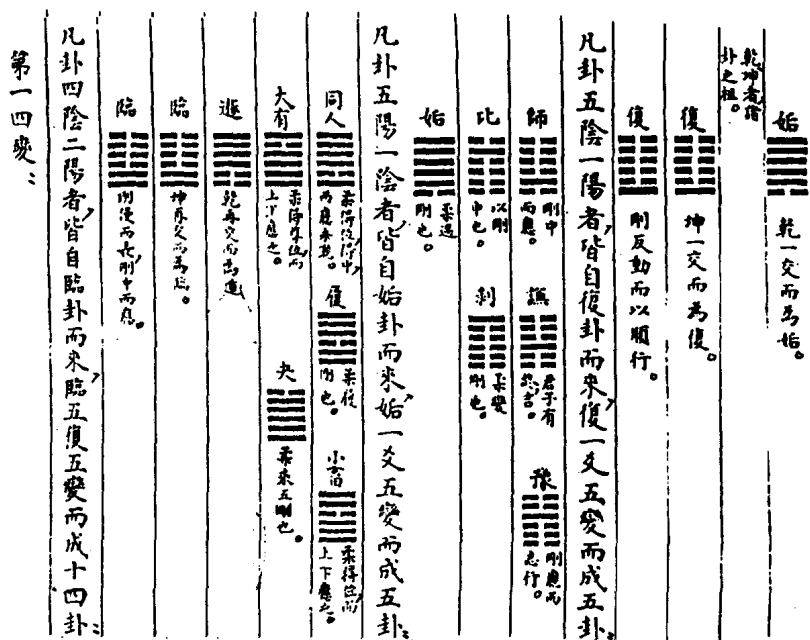 姤 乾一交而為姤。
乾坤者諸
卦之祖。
復 坤一交而為復。
復 剛反動而以順行。
凡卦五陰一陽者,皆自復卦而來,復一爻五變而成五卦:
師 剛中
而應。
謙 君子有
終吉。
豫 剛應而
志行。
比 以剛
中也。
剝 柔變
剛也。
姤 柔遇
剛也。
凡卦五陽一陰者,皆自姤卦而來,姤一爻五變而成五卦:
同人 柔得位得中,
而應乎乾。
履 柔履
剛也。
小畜 柔得位而
上下應之。
大有 柔得尊位而
上下應之。
夬 柔乘五剛也。
遯 乾再交而為遯
臨 坤再交而為臨。
臨 剛浸而長,剛中而應。
凡卦四陰二陽者,皆自臨卦而來,臨五復五變而成十四卦:
第一四變: